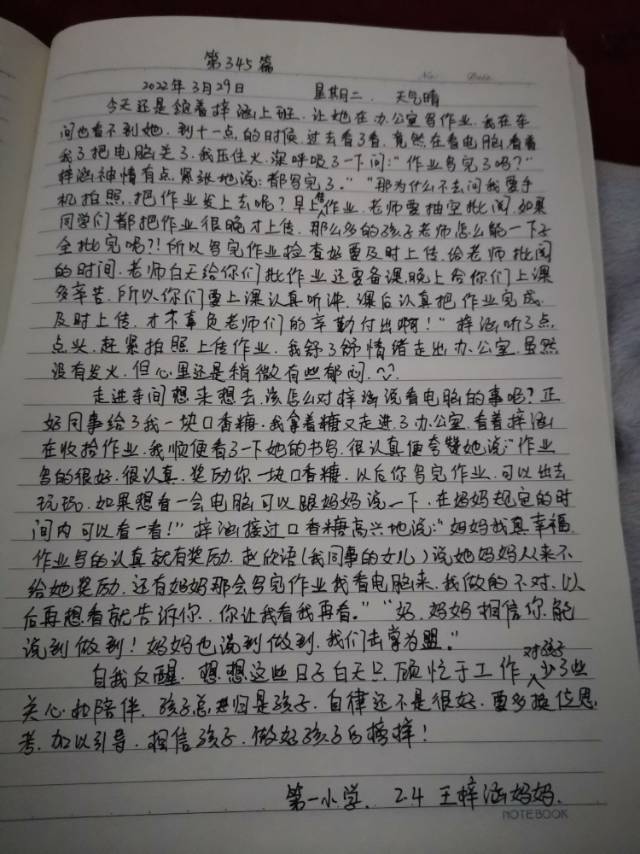 第345篇
No. Date.
2022年3月29日 星期二 天气晴
今天还是领着梓涵上班,让她在办公室写作业,我在车
间也看不到她,到十一点的时候,过去看了看,竟然在看电脑,看着
我了把电脑关了,我压住火,深呼吸了一下问:“作业写完了吗?”
梓涵神情有点紧张地说:都写完了。”“那为什么不去问我要手
机拍照,把作业发上去呢?早上传作业,老师要抽空批阅,如果
同学们都把作业很晚才上传,那么多的孩子老师怎么能一下子
全批完呢?!所以写完作业检查好要及时上传,给老师批阅
的时间,老师白天给你们批作业还要备课,晚上给你们上课
多辛苦,所以你们要上课认真听讲,课后认真把作业完成,
及时上传,才不辜负老师们的辛勤付出啊!”梓涵听了点
点头,赶紧拍照上传作业,我舒了舒情绪走出办公室,虽然
没有发火,但心里还是稍微有些郁闷,
走进车间想来想去,该怎么对梓涵说看电脑的事呢?正
好同事给了我一块口香糖,我拿着糖又走进了办公室,看着梓涵
在收拾作业,我顺便看了一下她的书写,很认真便夸赞她说:“作业
写的很好,很认真,奖励你一块口香糖,以后你写完作业,可以出去
玩玩,如果想看一会电脑可以跟妈妈说一下,在妈妈规定的时
间内可以看一看!”梓涵接过口香糖高兴地说:“妈妈我真幸福,
作业写的认真就有奖励,赵欣语(我同事的女儿)说她妈妈从来不
给她奖励,还有妈妈那会写完作业我看电脑来,我做的不对,以
后再想看就告诉你,你让我看我再看。”“好,妈妈相信你,能
说到做到!妈妈也说到做到,我们击掌为盟。”
自我反醒,想想这些日子白天只顾忙于工作,对孩子少了些
关心和陪伴,孩子总归是孩子,自律还不是很好,要多换位思
考,加以引导,相信孩子,做好孩子的榜样!
第一小学, 2.4 王梓涵妈妈.
NOTEBOOK